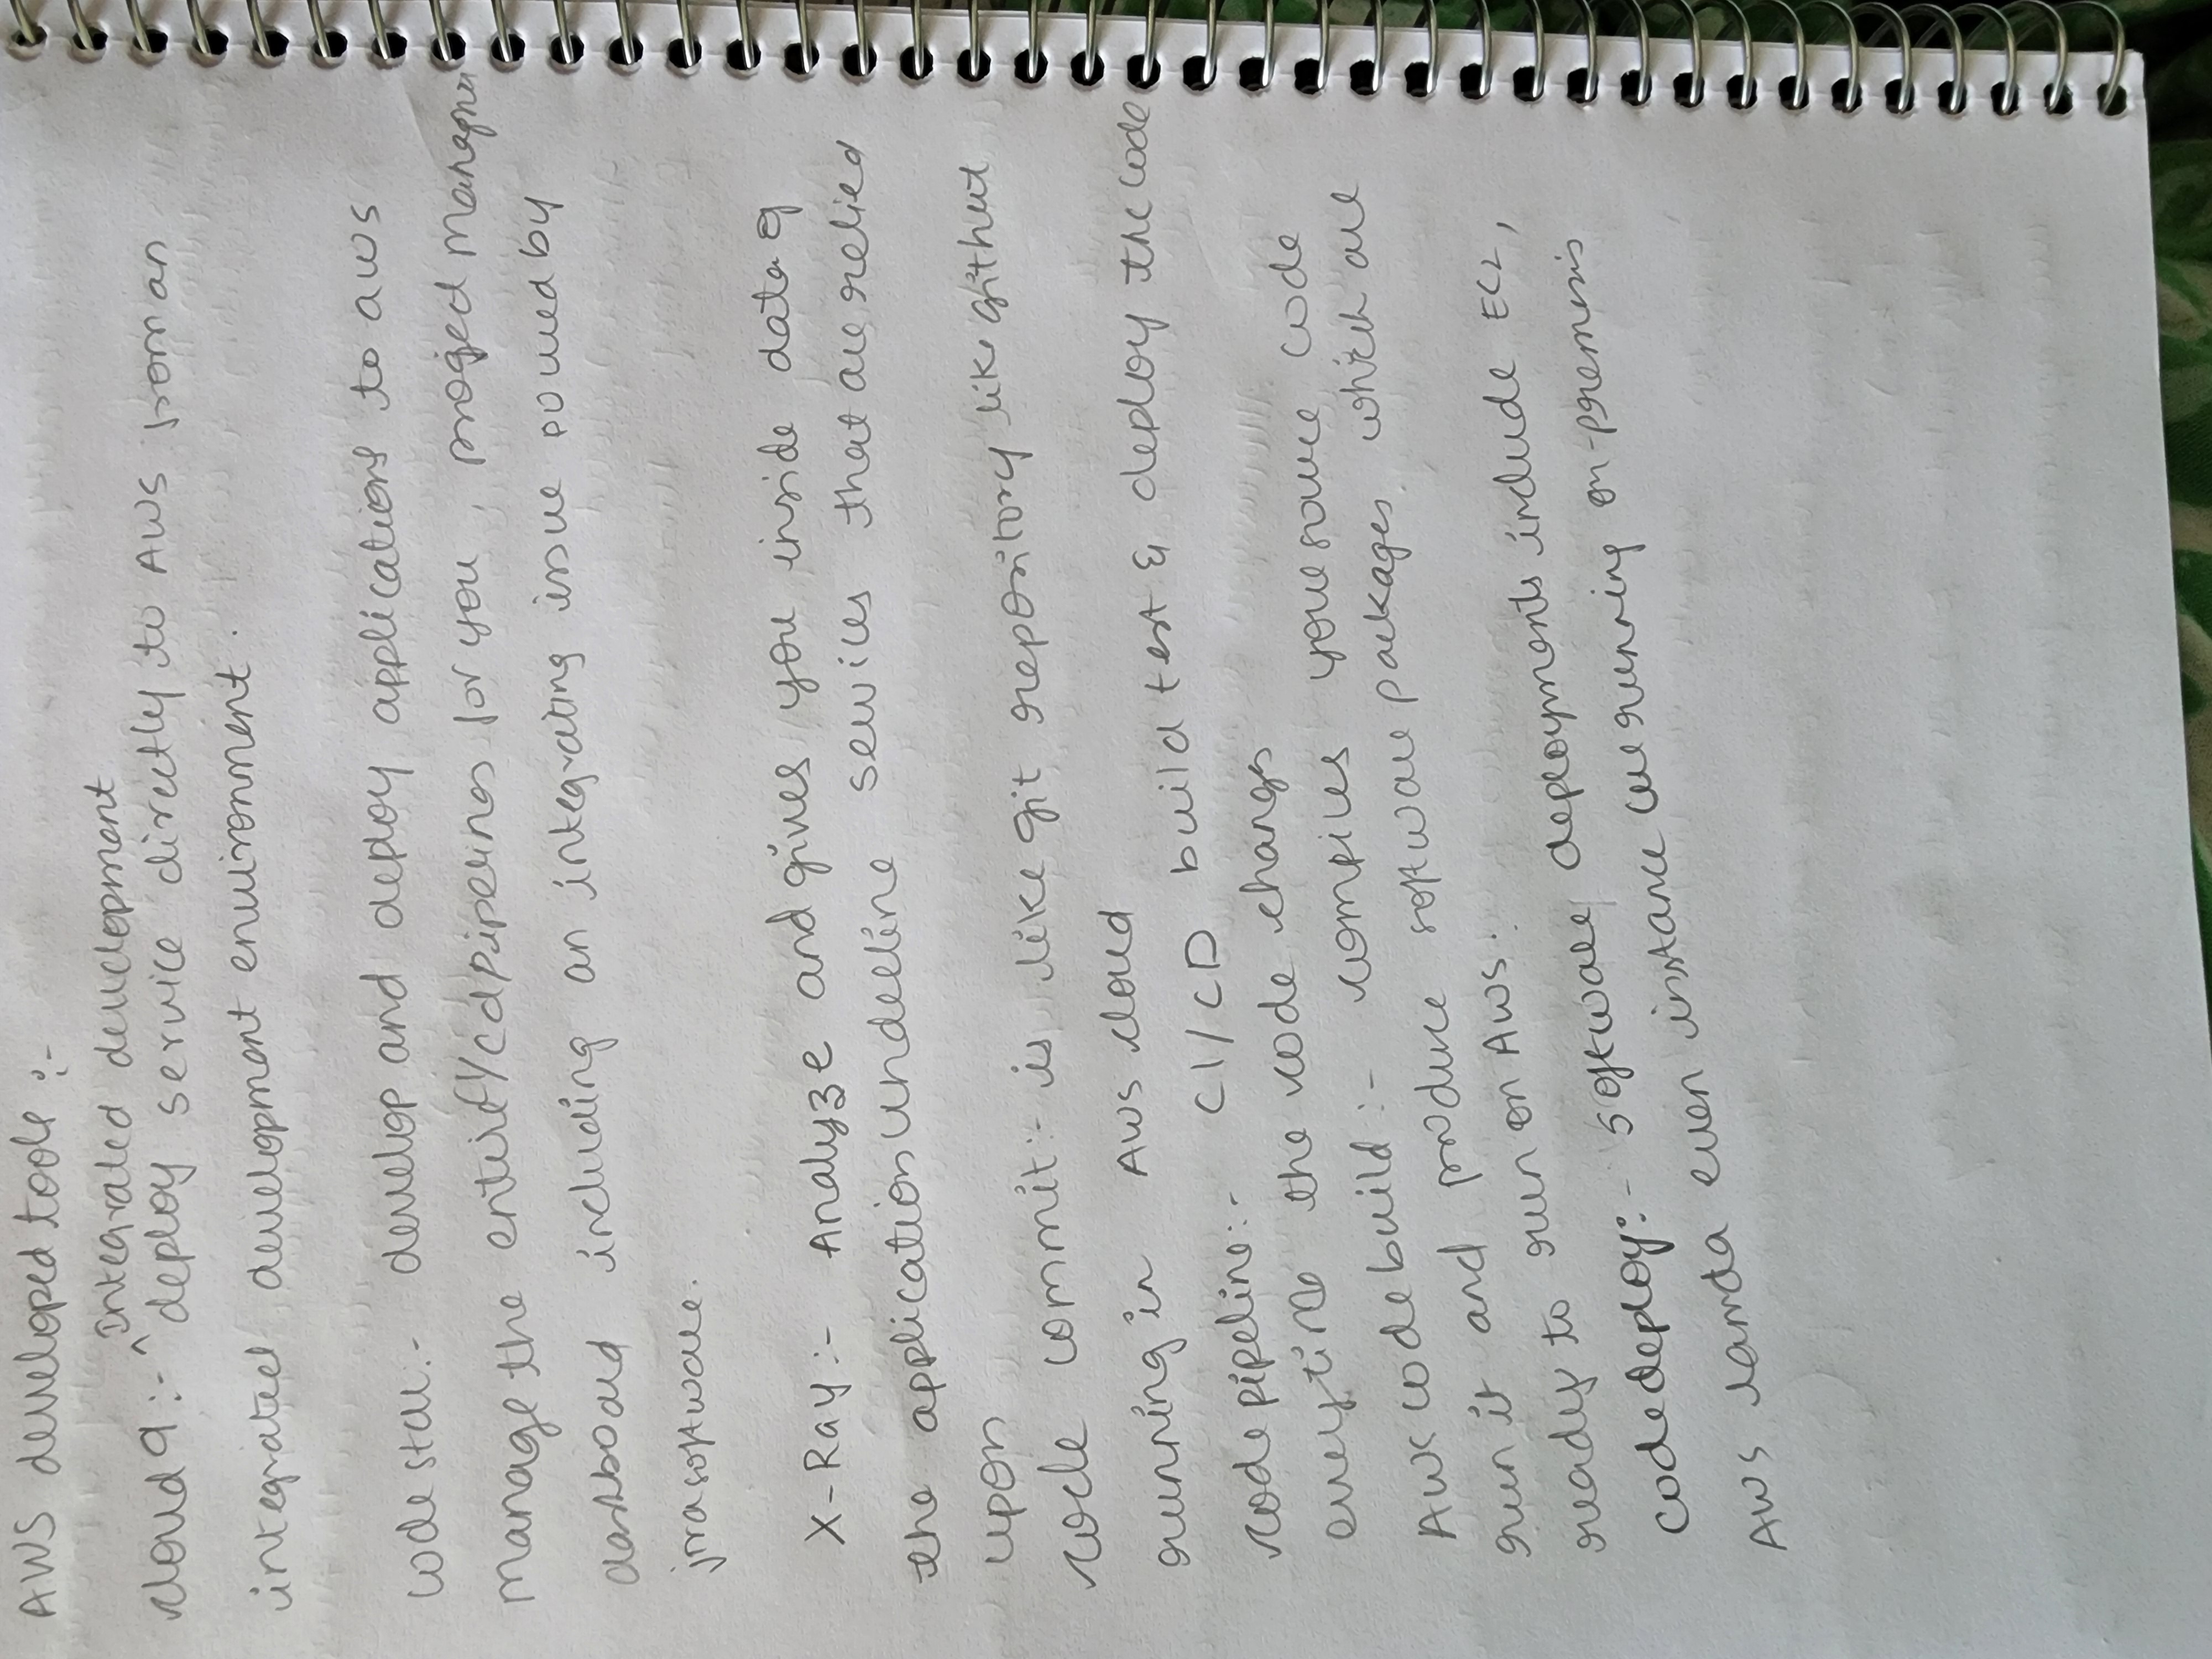 AWS developed tools :-
Integrated development
cloud 9 :- ^ deploy service directly to AWS from an
integrated development environment.
code star :- develop and deploy applications to aws
manage the entire CI/cd pipelines for you, proged
dashboard including an integrating issue powered by
jira software.
X-Ray :- Analyze and gives you inside data of
the application underline services that are relied
upon
code commit :- is like git repository like github
running in AWS cloud
code pipeline :- CI/CD build test & deploy the code
everytime the code changes
AWS code build :- compiles your source code
run it and produce software packages which are
ready to run on AWS.
code deploy :- software deployments include EC2,
AWS lamda even instance are running on-premesis